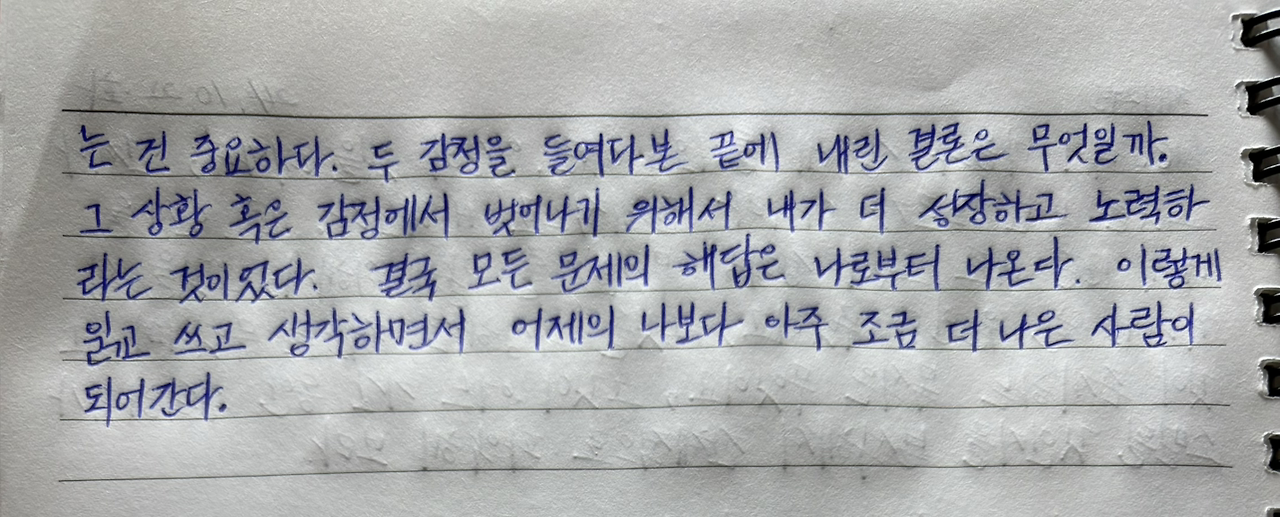 는 건 중요하다. 두 감정을 들여다본 끝에 내린 결론은 무엇일까.
그 상황 혹은 감정에서 벗어나기 위해서 내가 더 성장하고 노력하
라는 것이었다. 결국 모든 문제의 해답은 나로부터 나온다. 이렇게
읽고 쓰고 생각하면서 어제의 나보다 아주 조금 더 나은 사람이
되어간다.